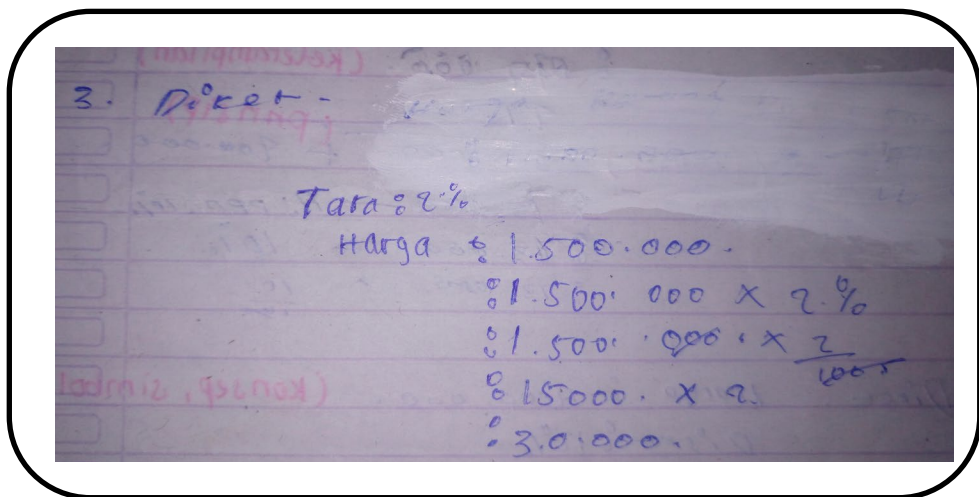 3. Diket -
Tara : 2%
Harga : 1.500.000.
: 1.500.000 x 2.%
: 1.500.000. x 2/100
: 15000. x 2.
: 30.000.
(konsep, simbol